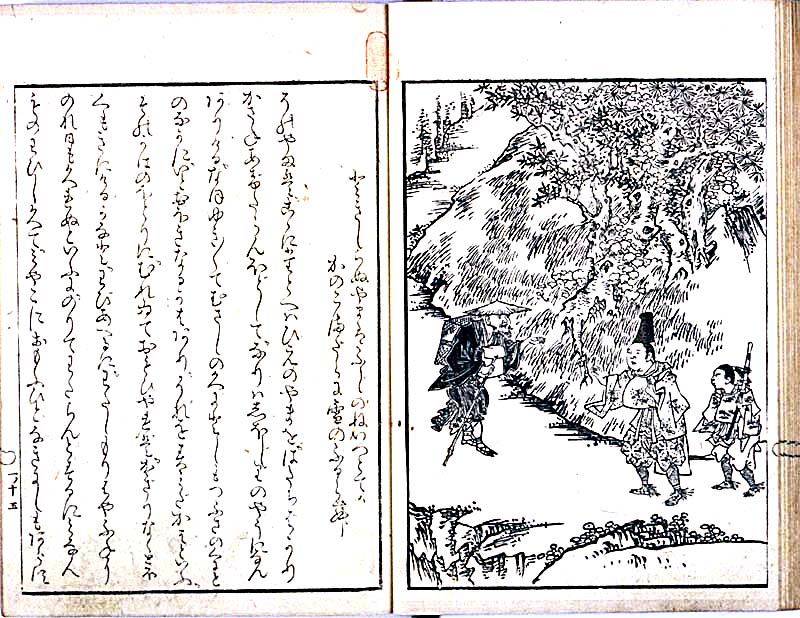 ときしらぬやまはふじのねいつとてか
かのこまだらに雪のふるらん
そのやまはこゝにたとへばひえのやまをはたちばかり
かさねあげたらんほどしてなりはしほじりのやうになん
ありけるなほゆき〳〵てむさしのくにとしもつふさのくにと
のなかにいとおほきなるかはありそれをすみだがはといふ
そのかはのほとりにむれゐておもひやればかぎりなくとほ
くもきにけるかなとわびあへるにわたしもりはやふねに
のれ日もくれぬといふにのりてわたらんとするにみな人
ものわびしくてみやこにおもふひとなきにしもあらず
十五